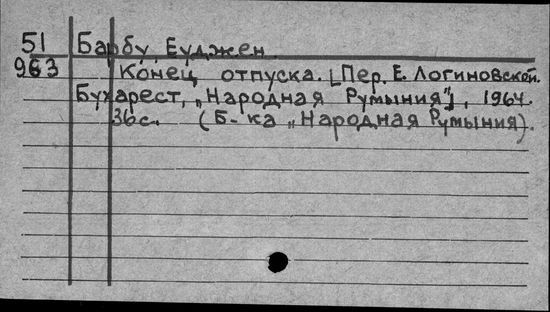 51 Барбу, Еуджен.
963 Конец отпуска. [Пер. Е. Логиновской.
Бухарест, „Народная Румыния"], 1964.
36с. (Б-ка „Народная Румыния).